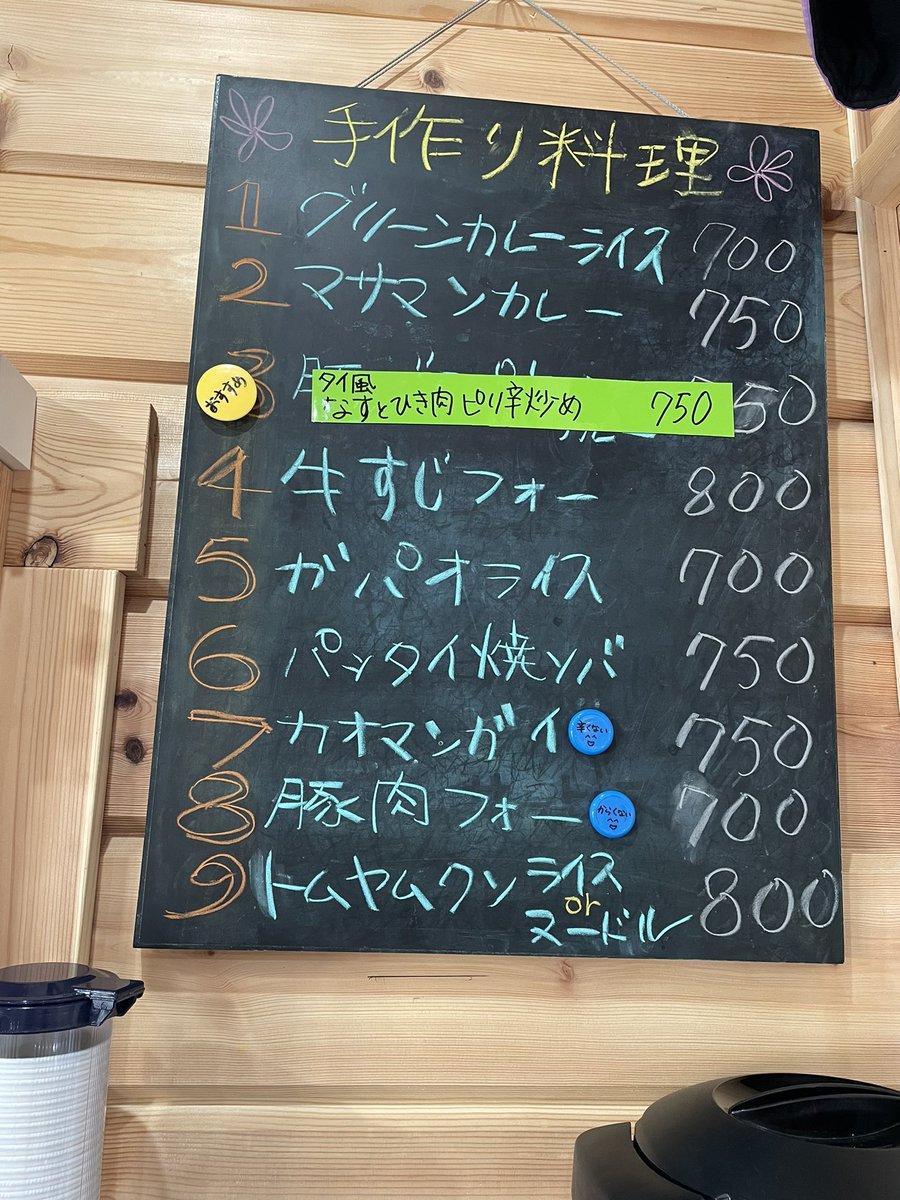 手作り料理
1 グリーンカレーライス 700
2 マサマンカレー 750
おすすめ
3 タイ風
なすとひき肉ピリ辛炒め 750
4 牛すじフォー 800
5 ガパオライス 700
6 パッタイ焼ソバ 750
7 カオマンガイ 辛くない 750
8 豚肉フォー からくない 700
9 トムヤムクン ライス or ヌードル 800